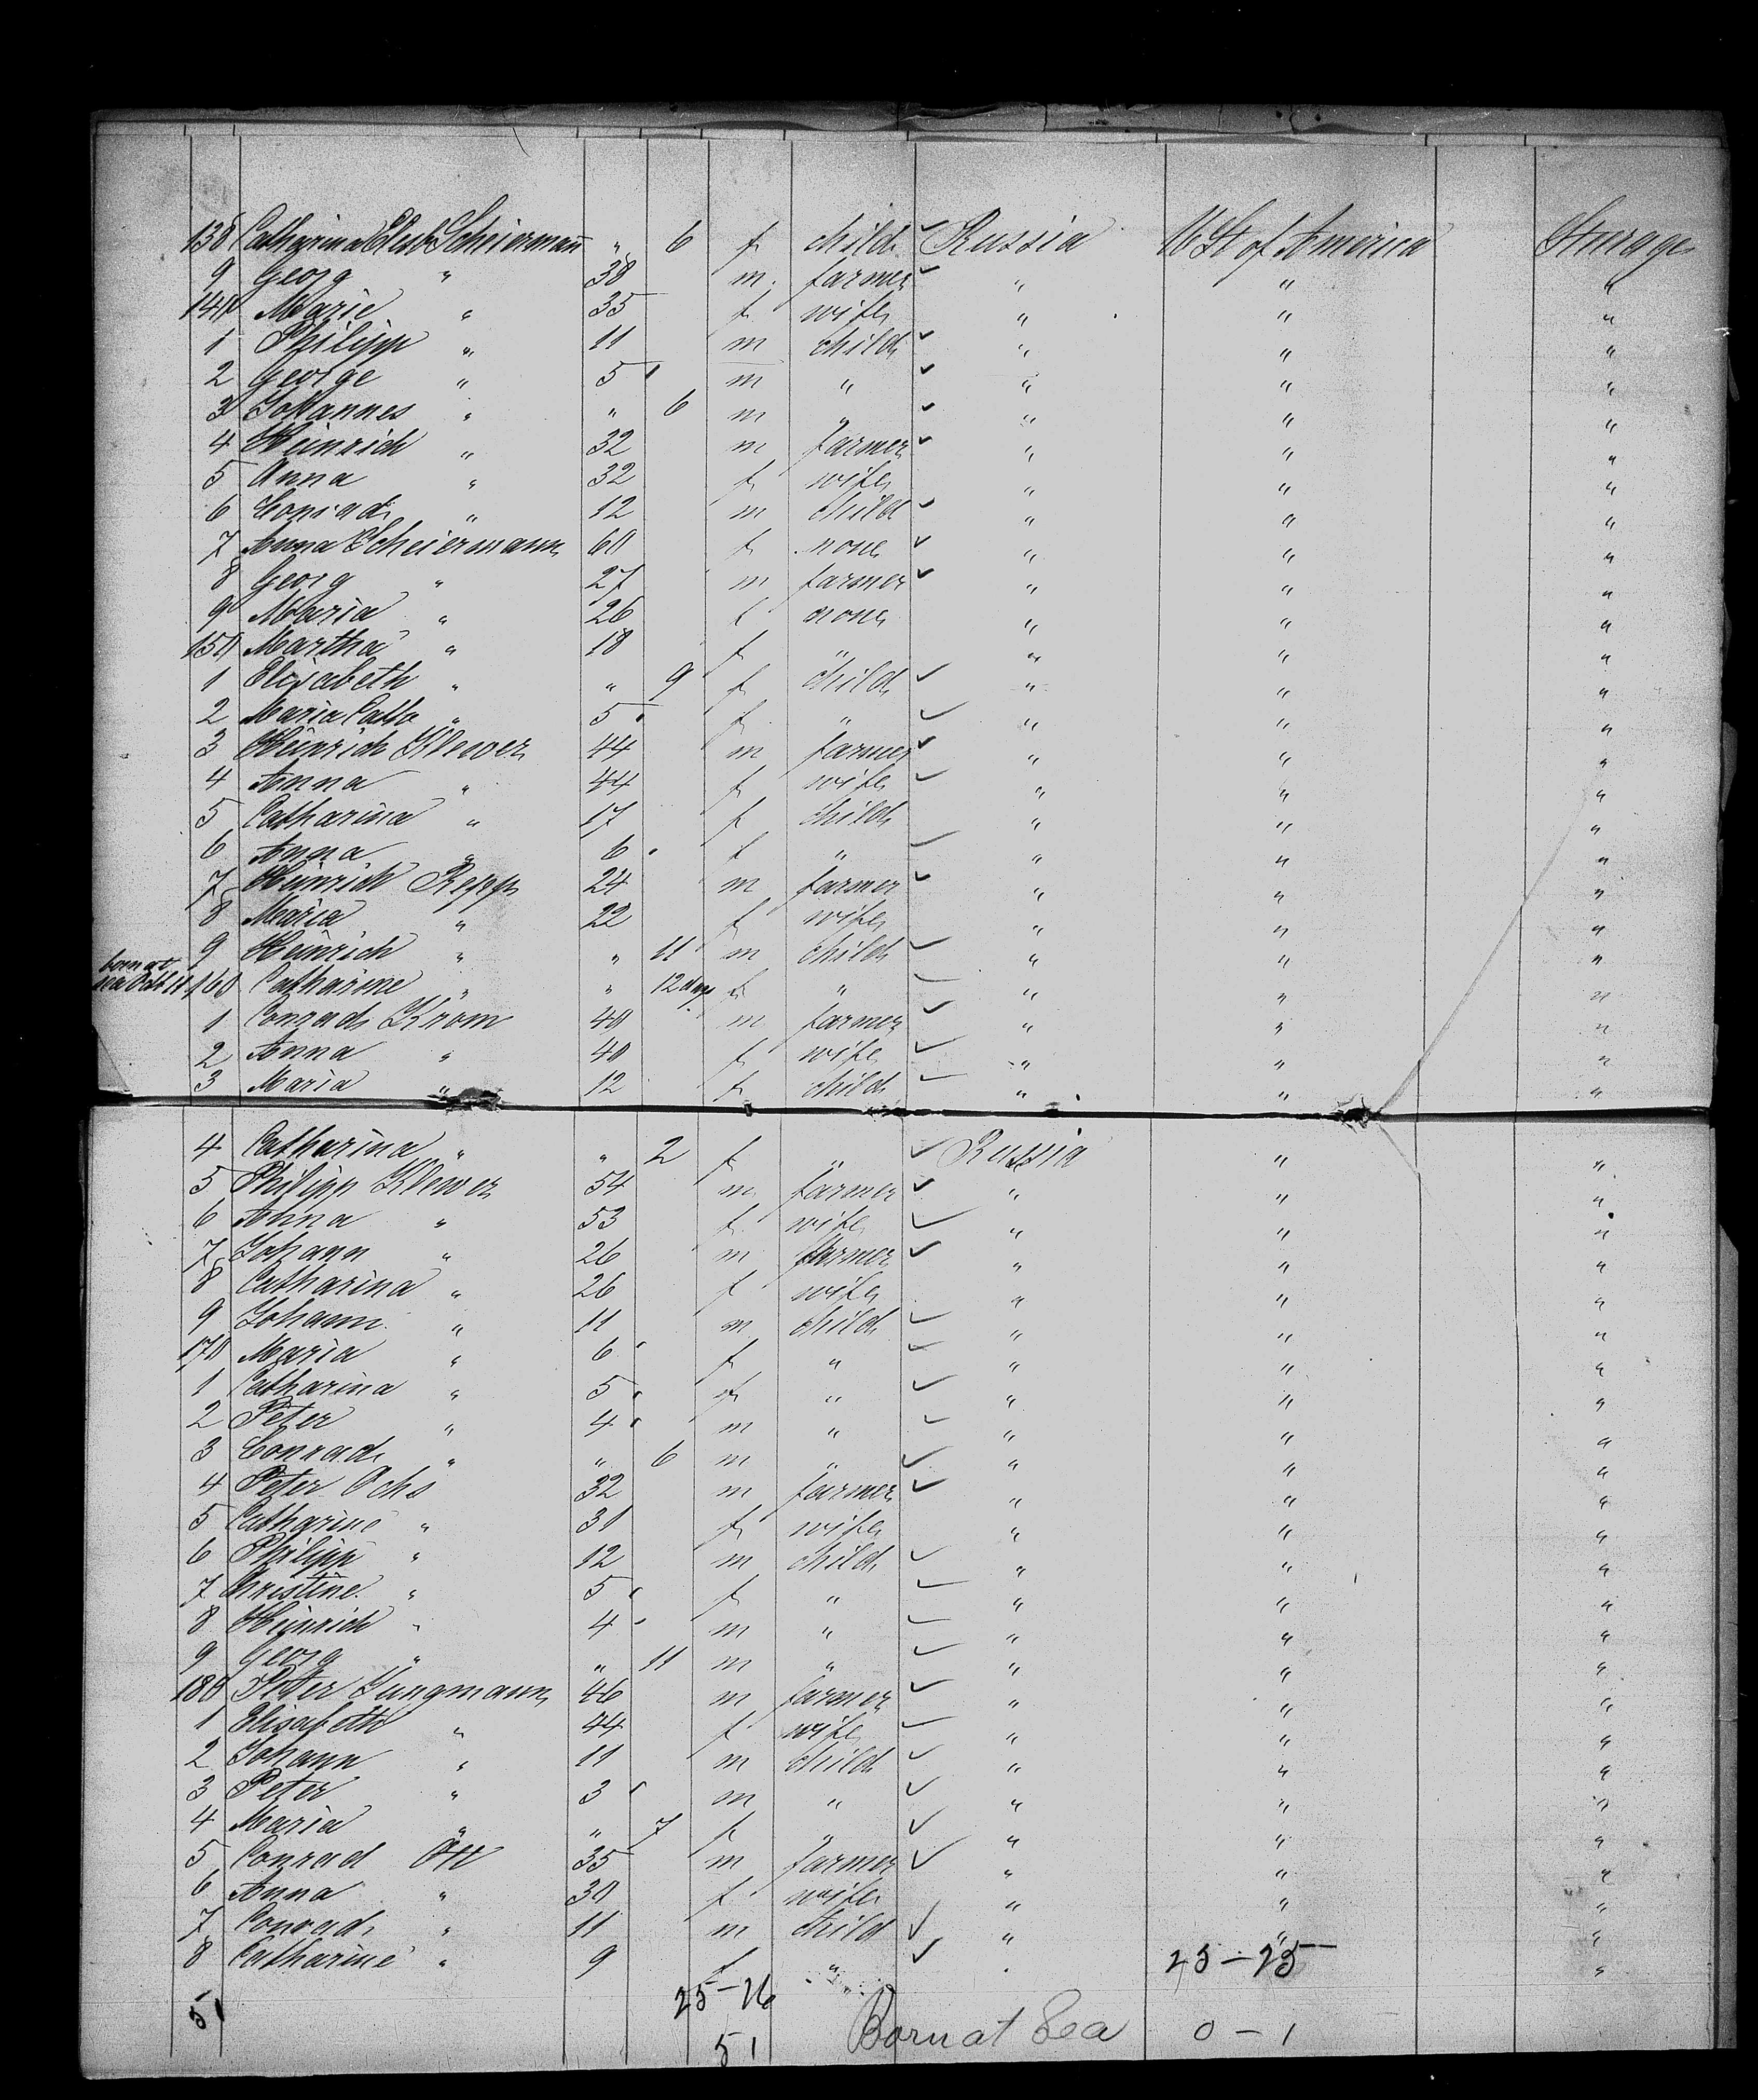 138 Catharina Elisb Scheiermann " 6 f child ✓ Russia U St of America Steerage
9 Georg " 38 m. farmer ✓ " " "
140 Marie " 35 f wife " " "
1 Philipp " 11 m child ✓ " " "
2 George " 5 m " ✓ " " "
3 Johannes " " 6 m " ✓ " " "
4 Heinrich " 32 m farmer ✓ " " "
5 Anna " 32 f wife " " "
6 Conrad " 12 m child ✓ " " "
7 Anna Scheiermann 60 f none ✓ " " "
8 Georg " 27 m farmer ✓ " " "
9 Maria " 26 f none " " "
150 Martha " 18 f " " " "
1 Elisabeth " " 9 f child ✓ " " "
2 Maria Cath " 5 f " ✓ " " "
3 Heinrich Klewer 44 m farmer ✓ " " "
4 Anna " 44 f wife ✓ " " "
5 Catharina " 17 f child " " "
6 Anna " 6 f " ✓ " " "
7 Heinrich Repp 24 m farmer ✓ " " "
8 Maria " 22 f wife " " "
9 Heinrich " " 11 m child ✓ " " "
born at
sea Octb 11 160 Catharine " " 12 days f " ✓ " " "
1 Conrad Krom 40 m farmer ✓ " " "
2 Anna " 40 f wife ✓ " " "
3 Maria " 12 f child ✓ " " "
4 Catharina " " 2 f " ✓ Russia " "
5 Philipp Klewer 54 m farmer ✓ " " "
6 Anna " 53 f wife ✓ " " "
7 Johann " 26 m farmer ✓ " " "
8 Catharina " 26 f wife " " "
9 Johann " 11 m child ✓ " " "
170 Maria " 6 f " ✓ " " "
1 Catharina " 5 f " ✓ " " "
2 Peter " 4 m " ✓ " " "
3 Conrad " " 6 m " ✓ " " "
4 Peter Ochs 32 m farmer ✓ " " "
5 Catharine " 31 f wife " " "
6 Philipp " 12 m child ✓ " " "
7 Christine " 5 f " ✓ " " "
8 Heinrich " 4 m " ✓ " " "
9 Georg " " 11 m " ✓ " " "
180 Peter Jungmann 46 m farmer ✓ " " "
1 Elisabeth " 44 f wife ✓ " " "
2 Johann " 11 m child ✓ " " "
3 Peter " 3 m " ✓ " " "
4 Maria " " 7 f " ✓ " " "
5 Conrad Ott 35 m farmer ✓ " " "
6 Anna " 30 f wife " " "
7 Conrad " 11 m child ✓ " " "
8 Catharine " 9 f " ✓ " 25 – 25 "
51 25 – 26
51 Born at Sea 0 – 1